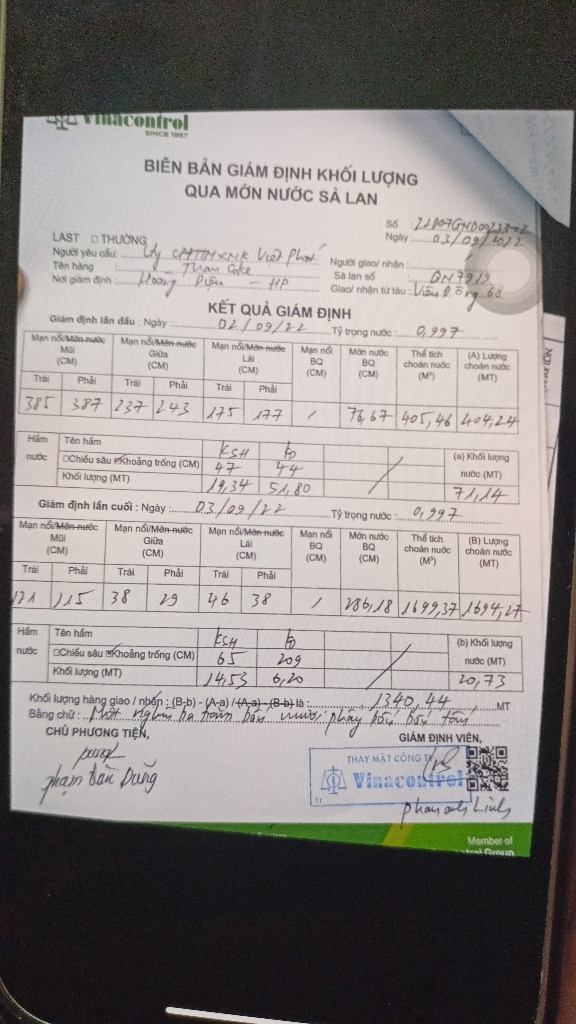 Vinacontrol
SINCE 1957
BIÊN BẢN GIÁM ĐỊNH KHỐI LƯỢNG
QUA MỚN NƯỚC SÀ LAN
Số :
LAST □ THƯỜNG
Ngày : 03/09/2022
Người yêu cầu: Cty CPTTMXNK Việt Phát
Người giao/ nhận :
Tên hàng : Than Coke
Sà lan số : QN7919
Nơi giám định : Hoàng Diệu - HP
Giao/ nhận từ tàu : Viễn Đông 68
KẾT QUẢ GIÁM ĐỊNH
Giám định lần đầu : Ngày : 02/09/22 Tỷ trọng nước : 0,997
Mạn nổi/Mớn nước Mũi (CM) Mạn nổi/Mớn nước Giữa (CM) Mạn nổi/Mớn nước Lái (CM) Mạn nổi BQ (CM) Mớn nước BQ (CM) Thể tích choán nước (M³) (A) Lượng choán nước (MT)
Trái Phải Trái Phải Trái Phải
385 387 237 243 175 177 / 76,67 405,46 404,24
Hầm nước Tên hầm KSH (a) Khối lượng nước (MT)
□Chiều sâu ☑Khoảng trống (CM) 47 44
Khối lượng (MT) 19,34 51,80 71,14
Giám định lần cuối : Ngày : 03/09/22 Tỷ trọng nước : 0,997
Mạn nổi/Mớn nước Mũi (CM) Mạn nổi/Mớn nước Giữa (CM) Mạn nổi/Mớn nước Lái (CM) Mạn nổi BQ (CM) Mớn nước BQ (CM) Thể tích choán nước (M³) (B) Lượng choán nước (MT)
Trái Phải Trái Phải Trái Phải
121 115 38 29 46 38 / 286,18 1699,37 1694,27
Hầm nước Tên hầm KSH (b) Khối lượng nước (MT)
□Chiều sâu ☑Khoảng trống (CM) 65 209
Khối lượng (MT) 14,53 6,20 20,73
Khối lượng hàng giao / nhận : (B-b) - (A-a) / (A-a) - (B-b) là : 1340,44 MT
Bằng chữ : Một nghìn ba trăm bốn mươi phẩy bốn bốn tấn
CHỦ PHƯƠNG TIỆN, GIÁM ĐỊNH VIÊN,
THAY MẶT CÔNG TY
Vinacontrol
Phạm Văn Dũng
Phan Anh Linh
Member of
Group